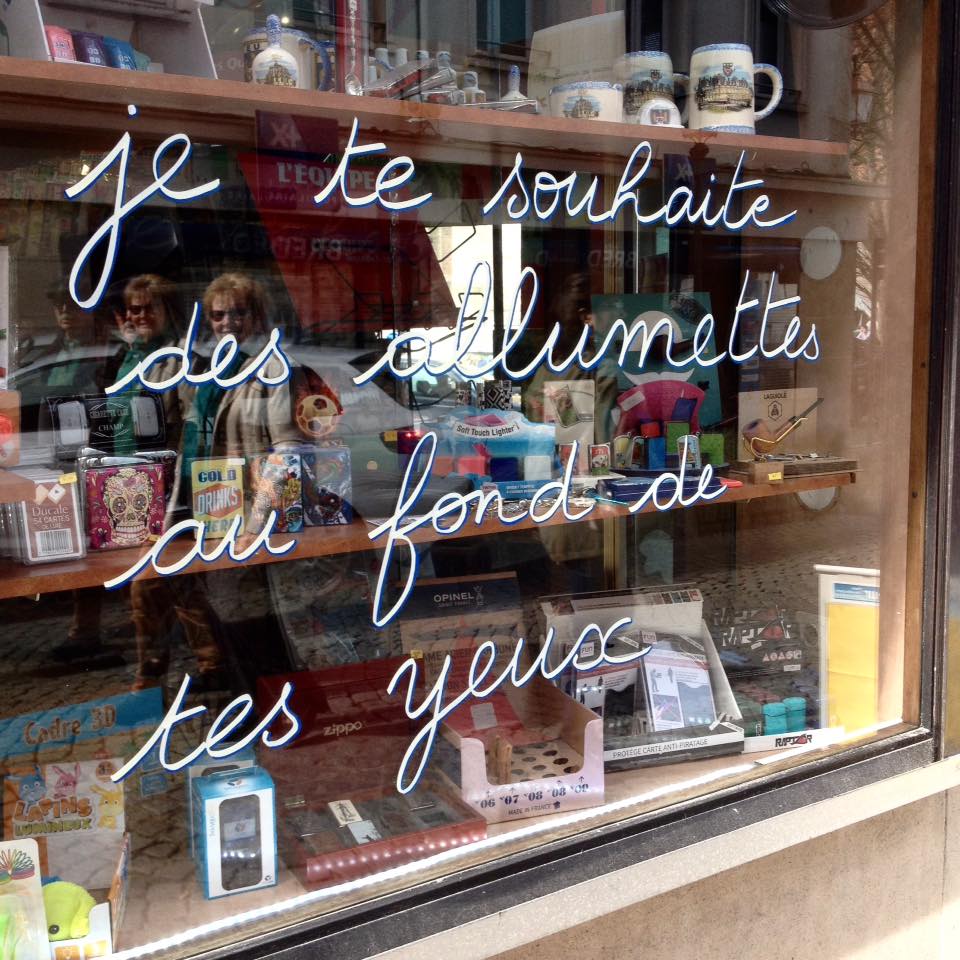 je te souhaite
des allumettes
au fond de
tes yeux
L'ÉQUIPE
BRED
CIGARETTE CASE
CHAMP
Soft Touch Lighter
LAGUIOLE
Ducale
54 CARTES
GOLD
DRINKS
OPINEL
zippo
run
run
Cadre 3D
LAPINS
LUMINEUX
N°06 N°07 N°08 N°08 N°09
MADE IN FRANCE
PROTÈGE CARTE ANTI-PIRATAGE